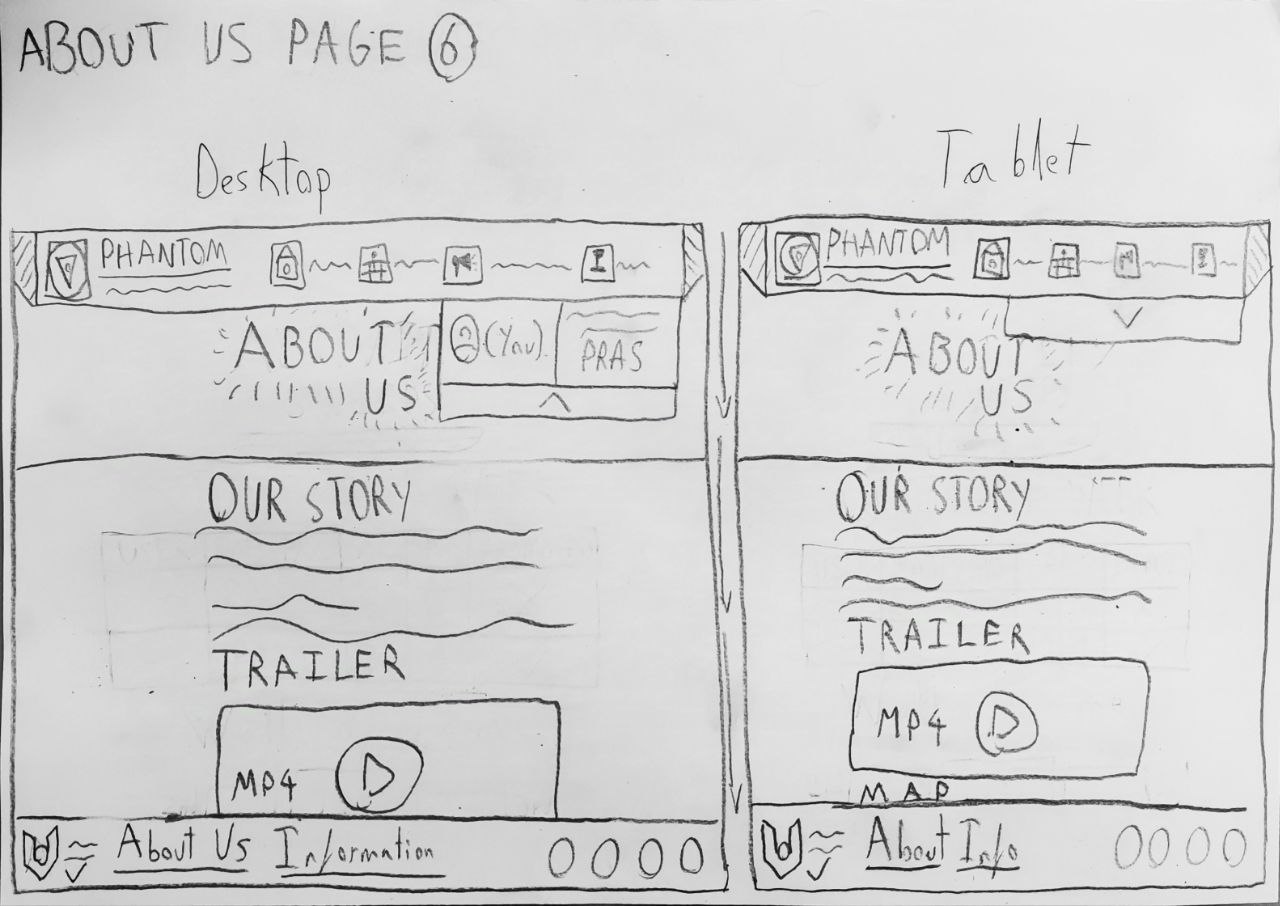 ABOUT US PAGE 6
Desktop
PHANTOM
ABOUT
US
(You)
PRAS
OUR STORY
TRAILER
MP4
About Us Information
Tablet
PHANTOM
ABOUT
US
OUR STORY
TRAILER
MP4
MAP
About Info